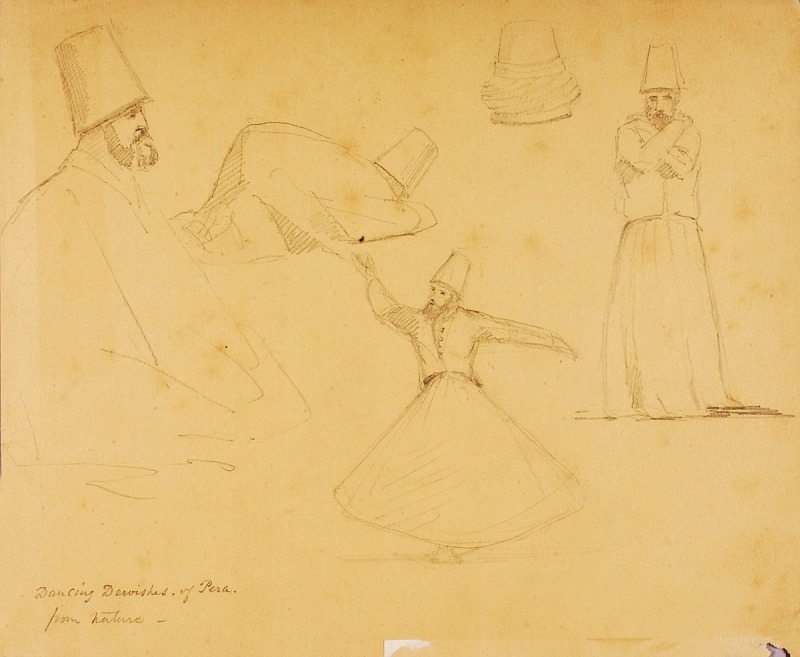 Dancing Dervishes. of Pera.
from Nature –